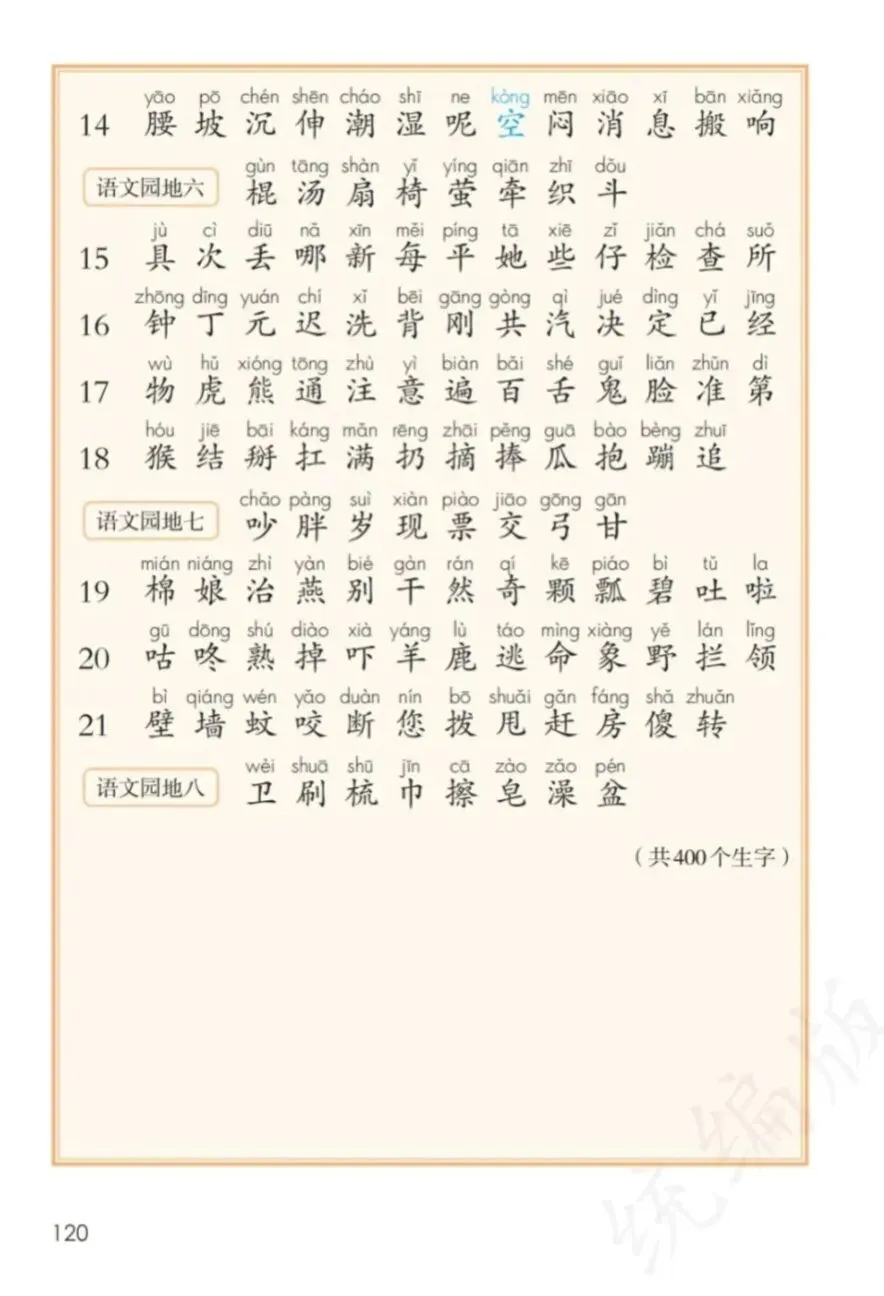 yāo pō chén shēn cháo shī ne kòng mēn xiāo xī bān xiǎng
14 腰 坡 沉 伸 潮 湿 呢 空 闷 消 息 搬 响
gùn tāng shàn yǐ yíng qiān zhī dǒu
语文园地六 棍 汤 扇 椅 萤 牵 织 斗
jù cì diū nǎ xīn měi píng tā xiē zǐ jiǎn chá suǒ
15 具 次 丢 哪 新 每 平 她 些 仔 检 查 所
zhōng dīng yuán chí xǐ bēi gāng gòng qì jué dìng yǐ jīng
16 钟 丁 元 迟 洗 背 刚 共 汽 决 定 已 经
wù hǔ xióng tōng zhù yì biàn bǎi shé guǐ liǎn zhǔn dì
17 物 虎 熊 通 注 意 遍 百 舌 鬼 脸 准 第
hóu jiē bāi káng mǎn rēng zhāi pěng guā bào bèng zhuī
18 猴 结 掰 扛 满 扔 摘 捧 瓜 抱 蹦 追
chǎo pàng suì xiàn piào jiāo gōng gān
语文园地七 吵 胖 岁 现 票 交 弓 甘
mián niáng zhì yàn bié gàn rán qí kē piáo bì tǔ la
19 棉 娘 治 燕 别 干 然 奇 颗 瓢 碧 吐 啦
gū dōng shú diào xià yáng lù táo mìng xiàng yě lán lǐng
20 咕 咚 熟 掉 吓 羊 鹿 逃 命 象 野 拦 领
bì qiáng wén yǎo duàn nín bō shuǎi gǎn fáng shǎ zhuǎn
21 壁 墙 蚊 咬 断 您 拨 甩 赶 房 傻 转
wèi shuā shū jīn cā zào zǎo pén
语文园地八 卫 刷 梳 巾 擦 皂 澡 盆
（共400个生字）
统编版
120